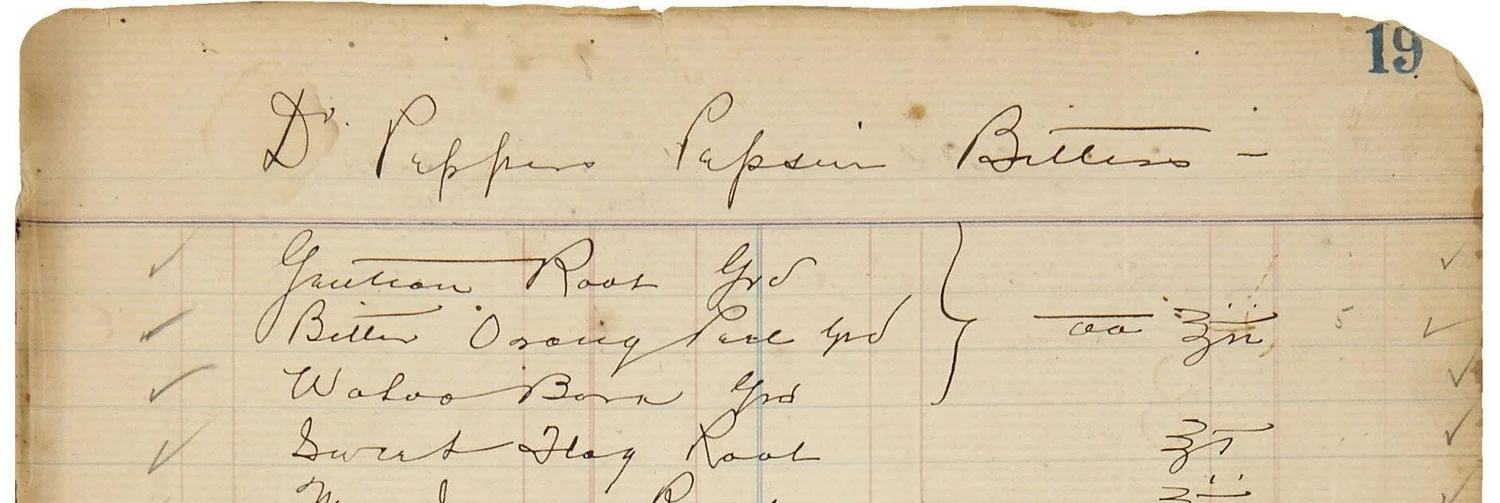 19
Dr. Peppers Pepsin Bitters –
Gentian Root Grd
Bitter Orang Peel Grd } aa ℥ii 5
Wahoo Bark Grd
Sweet Flag Root ℥i
Root ℥ii